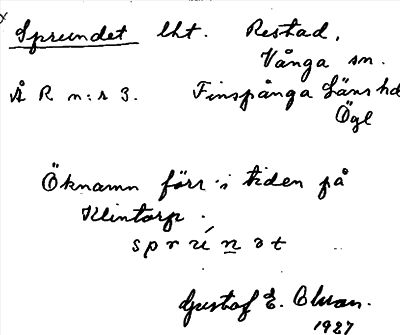 Sprundet lht. Restad,
Vånga sn.
Å R n:r 3. Finspånga Läns hd
Ögl
Öknamn förr i tiden på
Klintorp.
sprúnət
Gustaf E. Olsson.
1927